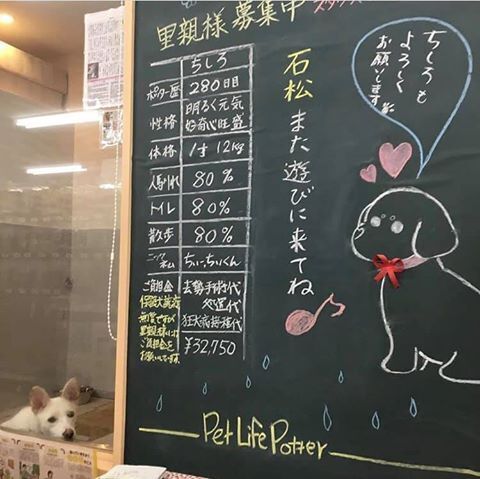 里親様募集中
ちしろ
ポッター歴 280日目
性格 明るく元気
好奇心旺盛
体格 1才 12kg
人馴れ 80%
トイレ 80%
散歩 80%
ニックネーム ちぃ、ちぃくん
ご負担金 去勢手術代
保護犬譲渡
無償ですが
里親様には
ご負担金を
お願いしています。
狂犬病接種代
¥32,750
石松また遊びに来てね
ちしろも
よろしく
お願いします
Pet Life Potter